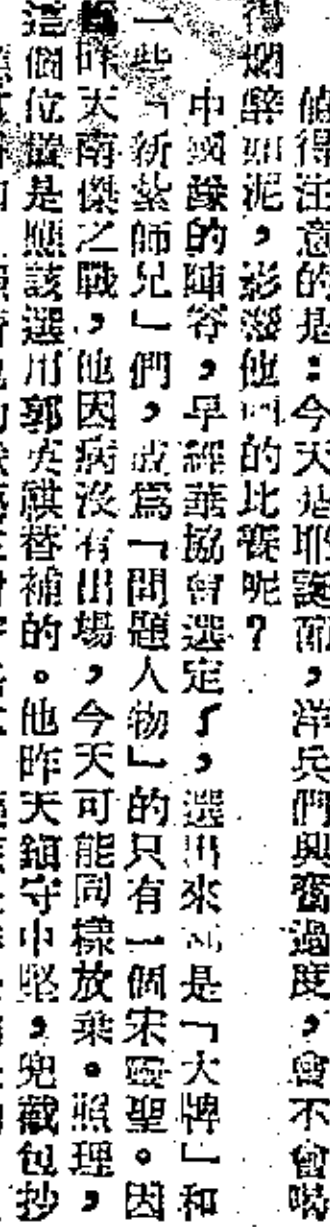 值得注意的是：今天是耶誕節，洋兵們興奮過度，會不會喝
得爛醉如泥，影響他們的比賽呢？
中國隊的陣容，早經華協會選定了，選出來的是「大牌」和
一些「新紮師兄」們，成爲「問題人物」的只有一個宋靈聖。因
爲昨天南傑之戰，他因病沒有出場，今天可能同樣放棄。照理，
這個位置是應該選用郭英麒替補的。他昨天鎮守中堅，兜截包抄